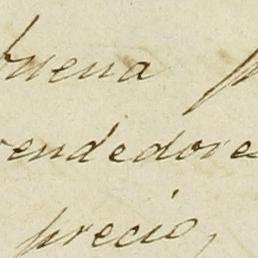 buena p
vendedore
precio,